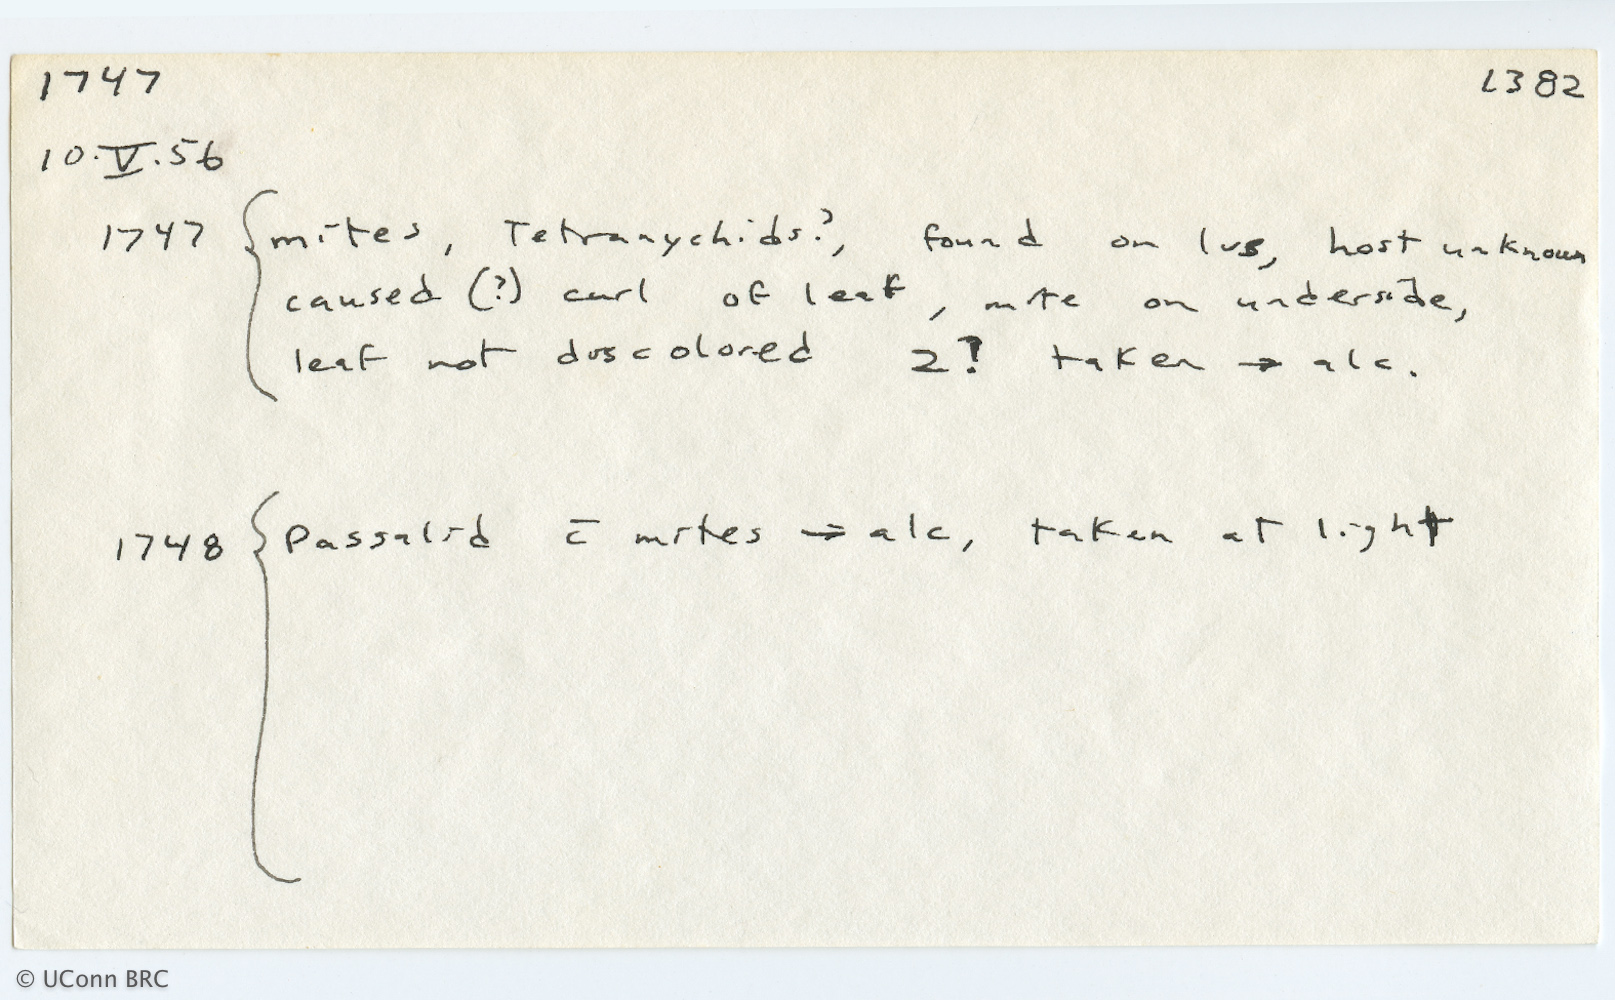 1747 1382
10.V.56
1747 {mites, Tetranychids?, found on lvs, host unknown
caused (?) curl of leaf, mite on underside,
leaf not discolored 2? taken → alc.
1748 {Passalid c̄ mites → alc, taken at light
© UConn BRC